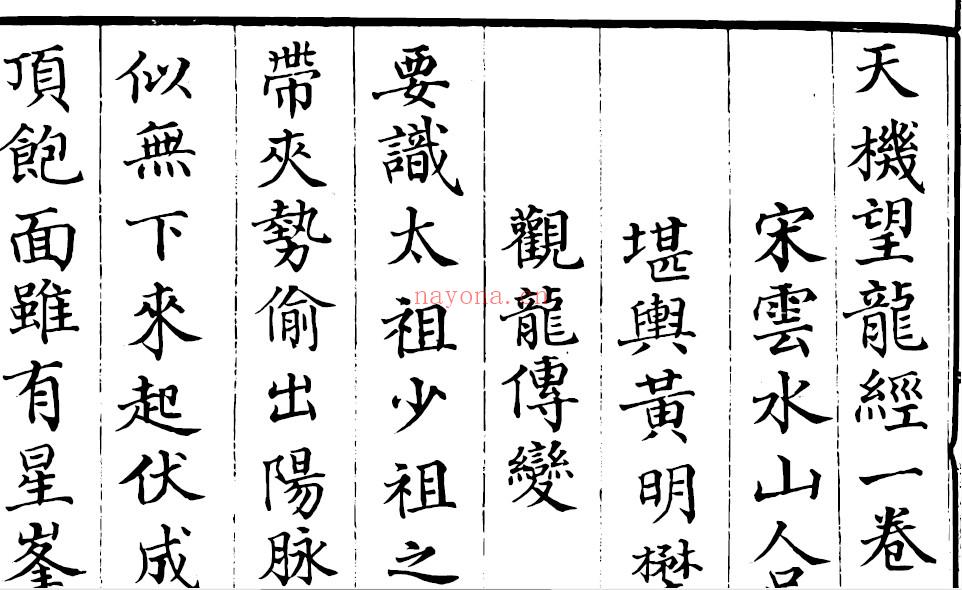 天機望龍經一卷
宋雲水山人
堪輿黃明懋
觀龍傳變
要識太祖少祖之
帶夾勢偷出陽脉
似無下來起伏成
頂飽面雖有星峯
nayona.cn